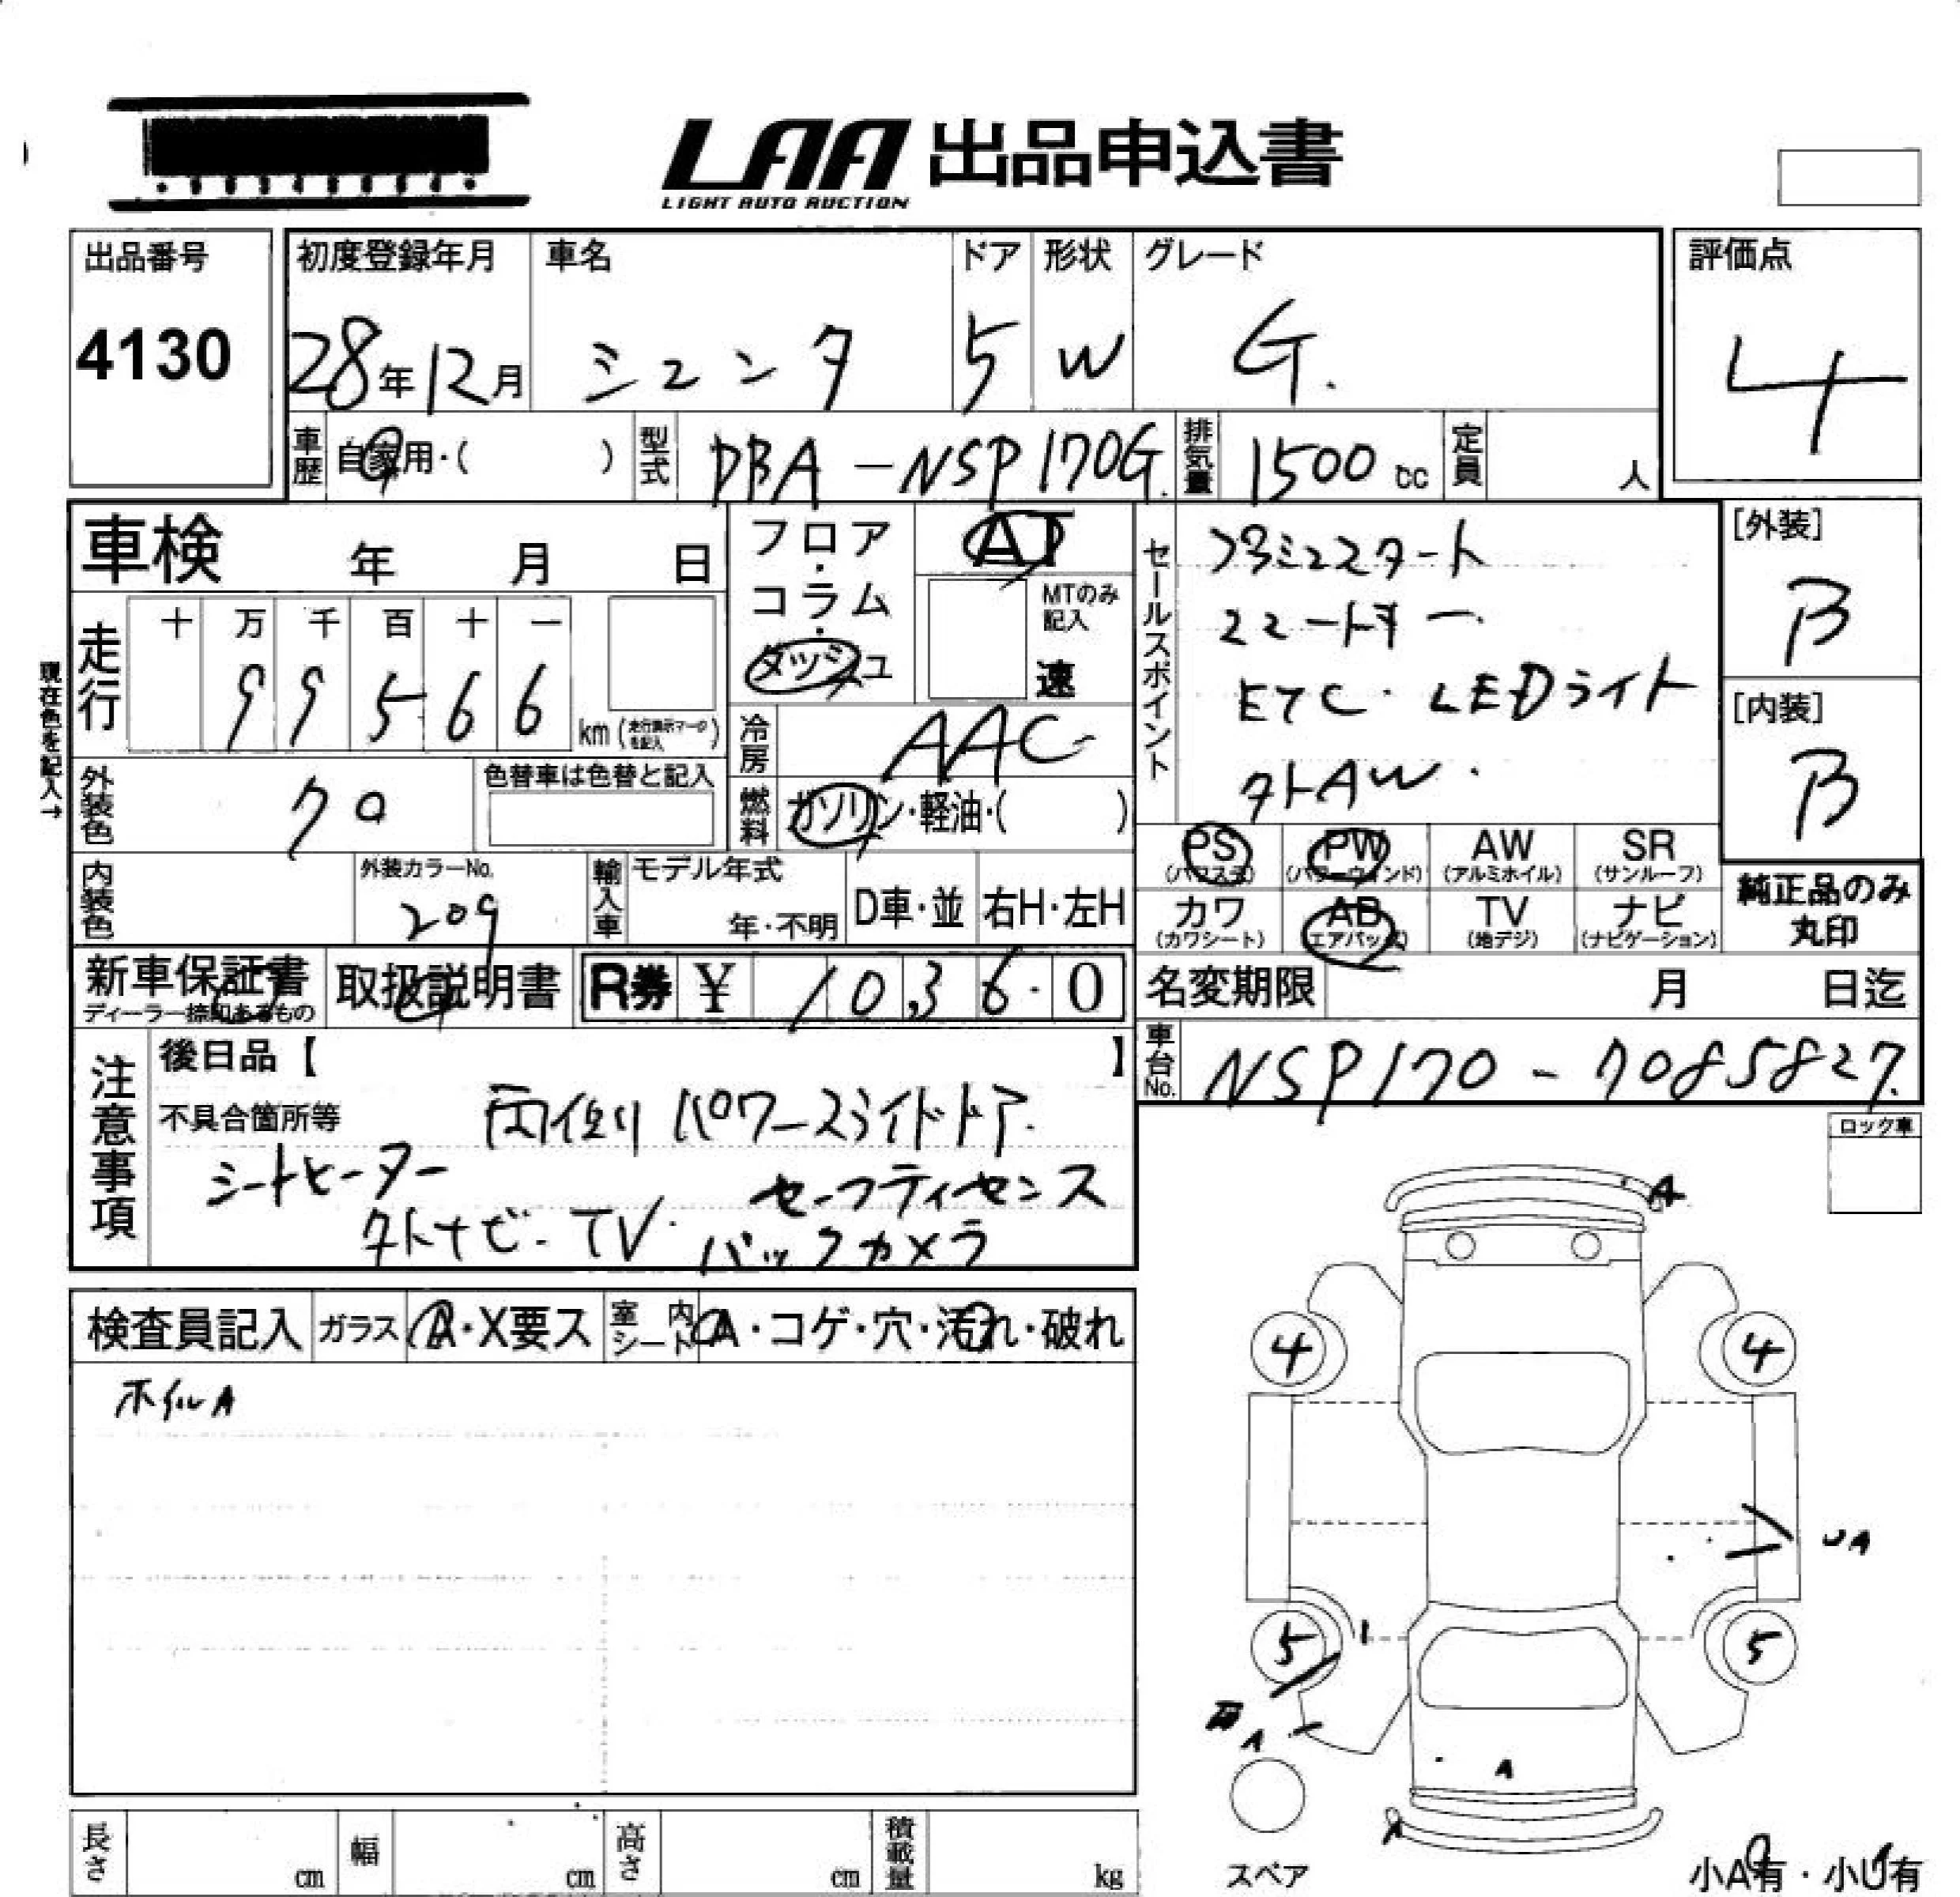 LAA 出品申込書
LIGHT AUTO AUCTION
出品番号
4130
初度登録年月 車名 ドア 形状 グレード
28年12月 シエンタ 5 W G.
評価点
4
車歴 自家用・( ) 型式 DBA-NSP170G. 排気量 1500cc 定員 人
車検 年 月 日
フロア・コラム・ダッシュ
AT
MTのみ記入
速
現在色を記入→
走行 十 万 千 百 十 一
9 9 5 6 6 km(走行表示マークを記入)
冷房 AAC
外装色 クロ 色替車は色替と記入
燃料 ガソリン・軽油・( )
内装色 外装カラーNo. 209
輸入車 モデル年式 年・不明 D車・並 右H・左H
セールスポイント
プッシュスタート
スマートキー
ETC・LEDライト
外AW.
[外装]
B
[内装]
B
PS (パワステ) PW (パワーウインド) AW (アルミホイル) SR (サンルーフ)
カワ (カワシート) AB (エアバッグ) TV (地デジ) ナビ (ナビゲーション)
純正品のみ丸印
新車保証書 ディーラー捺印あるもの 取扱説明書 R券 ¥ 10,360
名変期限 月 日迄
車台No. NSP170-7085827.
注意事項
後日品【 】
不具合箇所等 両側パワースライドドア.
シートヒーター セーフティセンス
外ナビ・TV. バックカメラ
ロック車
検査員記入 ガラス A・X要ス 室内シート A・コゲ・穴・汚れ・破れ
ホイルA
A
4 4
UA
5 5
A
A
長さ cm 幅 cm 高さ cm 積載量 kg
スペア
小A有・小U有